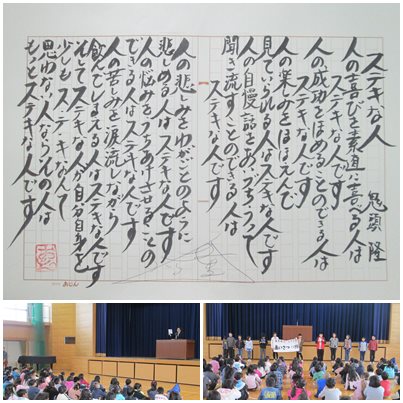 ステキな人　鬼頭 隆
人の喜びを素直に喜べる人は
ステキな人です
人の成功をほめることのできる人は
ステキな人です
人の楽みをほほえんで
見ていられる人はステキな人です
人の自慢話をあいづちうって
聞き流すことのできる人は
ステキな人です
人の悲しみをわがことのように
悲しめる人はステキな人です
人の悩みをうちあけさせることの
できる人はステキな人です
人の苦しみを涙流しながら
飲んでしまえる人はステキな人です
そしてステキな人が自分自身を
少しもステキなんて
思わない人ならその人は
もっとステキな人です
あいさつ